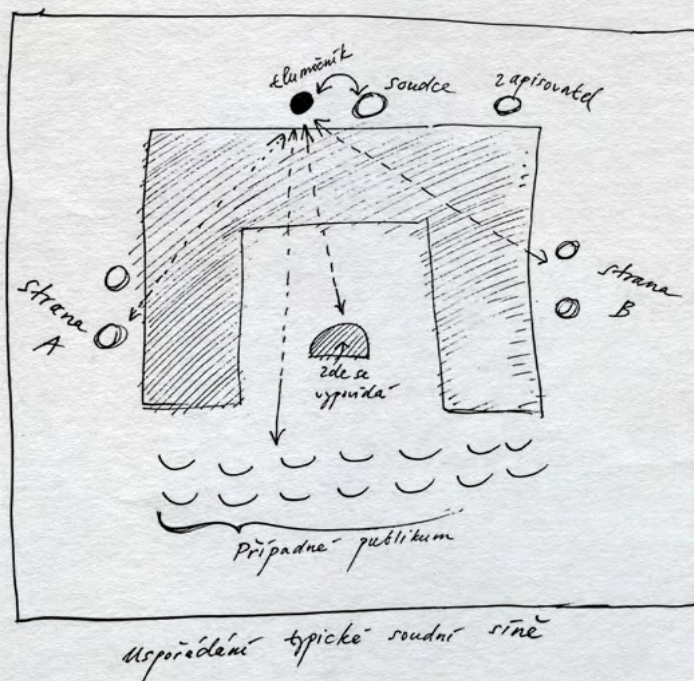 tlumočník
soudce
zapisovatel
strana
A
strana
B
zde se
vypovídá
Případné publikum
Uspořádání typické soudní síně